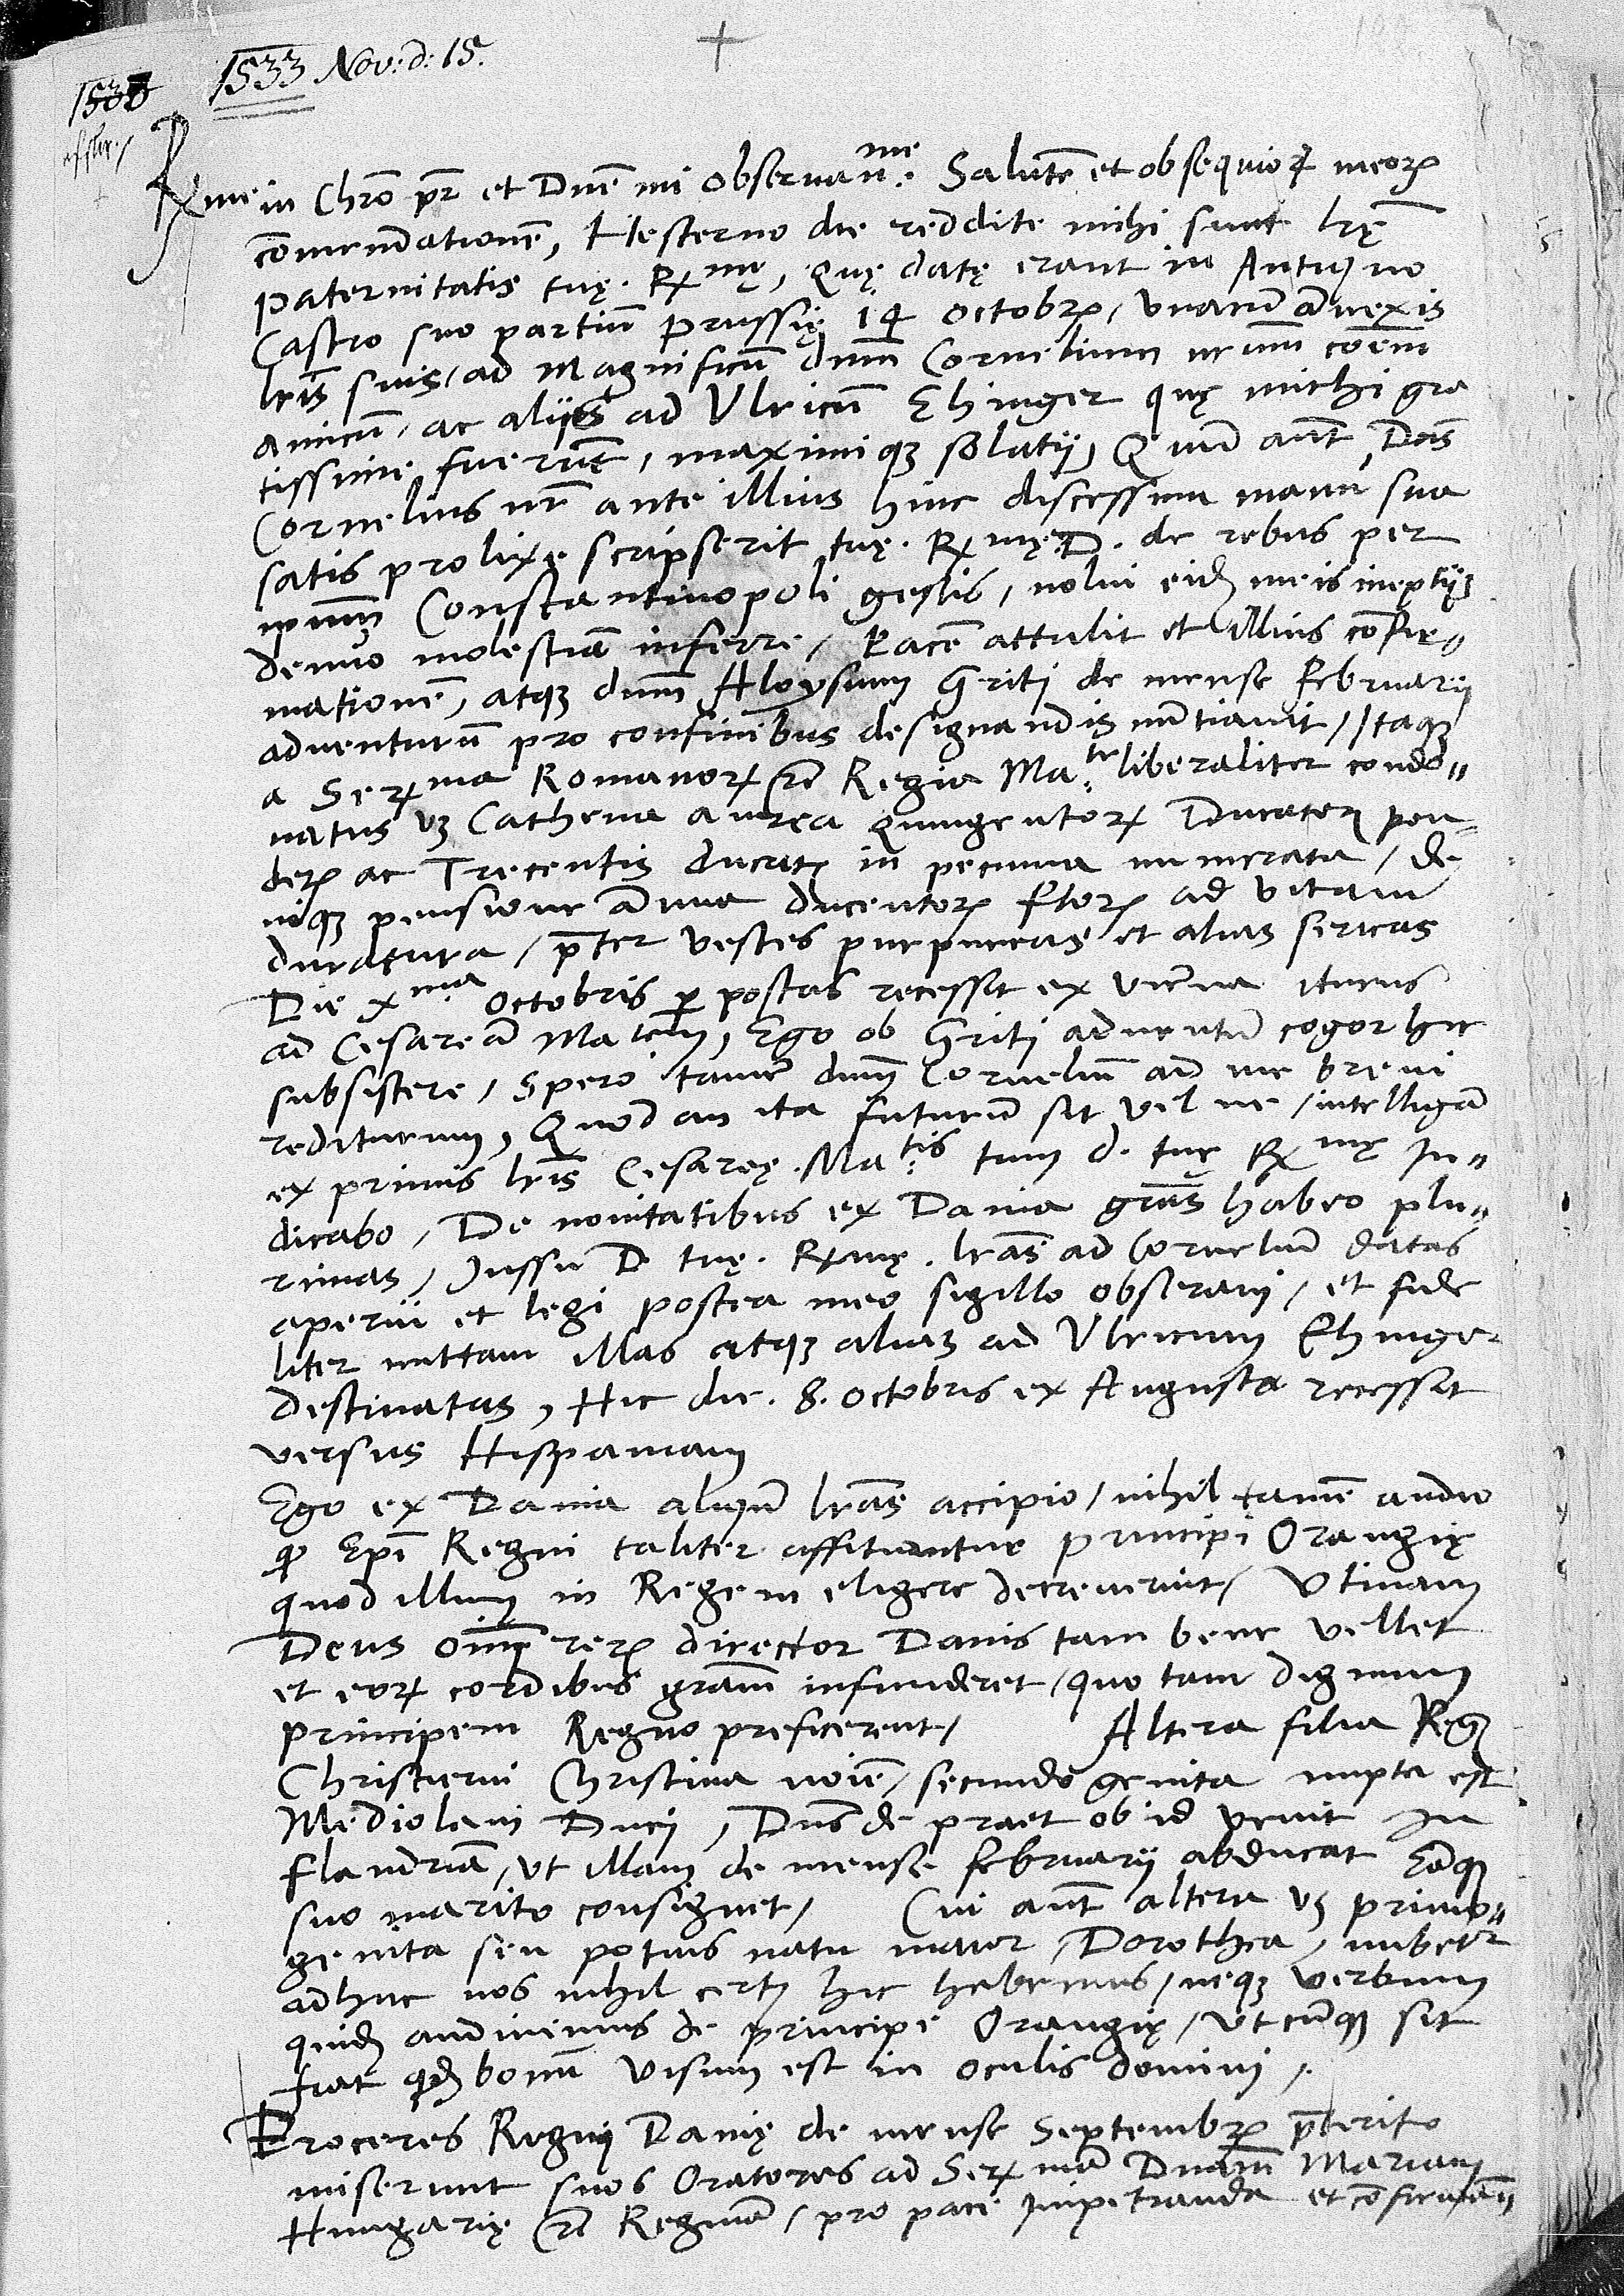 1533 Nov: d: 15.
Rme in Chro pr et Dne mi observanme: Salutē et obsequiorꝝ meorꝝ
cōmendationē, Hesterno die reddite mihi sunt lrę
paternitatis tuę. Rmę, Quę datę erant in Antiquo
Castro suo partiū Prussię 14 octobrꝭ, vnacū añexis
lris suis, ad Magnificū dnm Cornelium nrum cōem
amicū, ac alijs ad Vlricū Ehinger quę michi gra
tissime fuerūt, maximiqꝫ solatij, Quū aūt Dns
Cornelius nr ante illius hinc discessum manu sua
satis prolixe scripserit tuę. Rmę. D. de rebus per
ipsum Constantinopoli gestis, nolui eidē meis ineptijs
denuo molestiā inferre, Pacē attulit et illius cōfir
mationē, atqꝫ dnm Aloysium Griti de mense februarij
adventurū pro confinibus designandis nūtiavit, Itaqꝫ
a Serma Romanorꝝ etc Regia Mate. liberaliter condo"
natus vꝫ Cathena aurea Quingentorꝝ Ducatorꝝ pon
derꝭ ac Trecentis ducatꝭ in pecunia numerata, de
niqꝫ pensione añua ducentorꝝ florꝝ ad vitam
duratura, pter vestes purpureas et alias sericas
Die xma octobris ꝑ postas recessit ex vienna iturus
ad Cesareā Matem, Ego ob Griti adventū cogor hic
subsistere, Spero tamē dnm Corneliū ad me brevi
rediturum, Quod an ita futurū sit vel ne, intelligā
ex primis lris Cesareę. Matis tum d. tuę Rmę In"
dicabo, De novitatibus ex Dania gras habeo plu"
rimas, Jussu D. tuę. Rmę. lras ad Corneliū datas
aperui et legi postea meo sigillo obseravi, et fide
liter mittam illas atqꝫ alias ad Vlricum Ehinger
destinatas, Hic die. 8. octobris ex Augusta recessit
versus Hispaniam
Ego ex Dania aliqñ lras accipio, nihil tamē audio
ꝙ Epi Regni taliter afficiantur principi Orangię
quod illum in Regem eligere decreverint, Vtinam
Deus oim rerꝝ director Danis tam bene vellet
et eorꝝ cordibus gram infunderet, quo tam dignum
principem Regno preficerent, Altera filia Regꝭ
Christierni Christina noie, secundo genita nupta est
Mediolani Ducj, Dns de praet ob id venit In
flandriā, vt illam de mense februarij abducat Eāqꝫ
suo marito consignet, Cui aūt altera vꝫ primo"
genita seu potius natu maior, Dorothea, nubetr
adhuc nos nihil certj hic habemus, neqꝫ verbum
quidē audivimus de principe Orangię, Vtcūqꝫ sit
fiat qd bonū visum est in oculis domini,
Proceres Regnj Danię de mense Septembrꝭ pterito
miserunt suos Oratores ad Sermā Dnam Mariam
Hungarię etc Reginā, pro pace Impetranda et